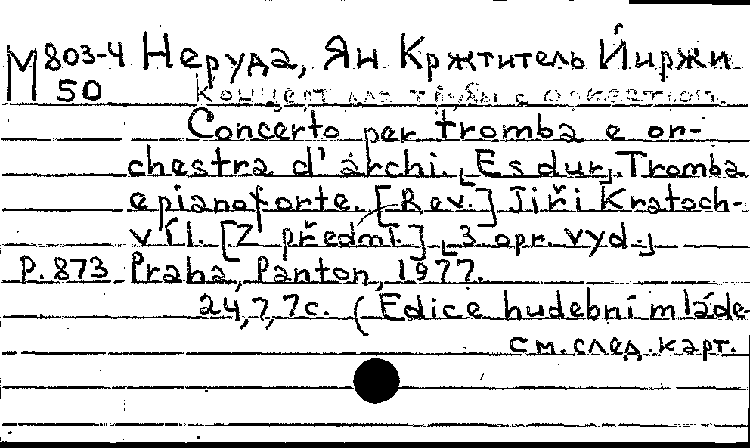 М 803-4 Неруда, Ян Кржтитель Йиржи
50 Концерт для трубы с оркестром.
Concerto per tromba e or-
chestra d'archi. [Es dur]. Tromba
e pianoforte. [Rev.] Jiři Kratoch-
víl. [Z předml.] [3. opr. vyd.]
P.873 Praha, Panton, 1977.
24,7,7с. (Edice hudební mláde-
см. след. карт.